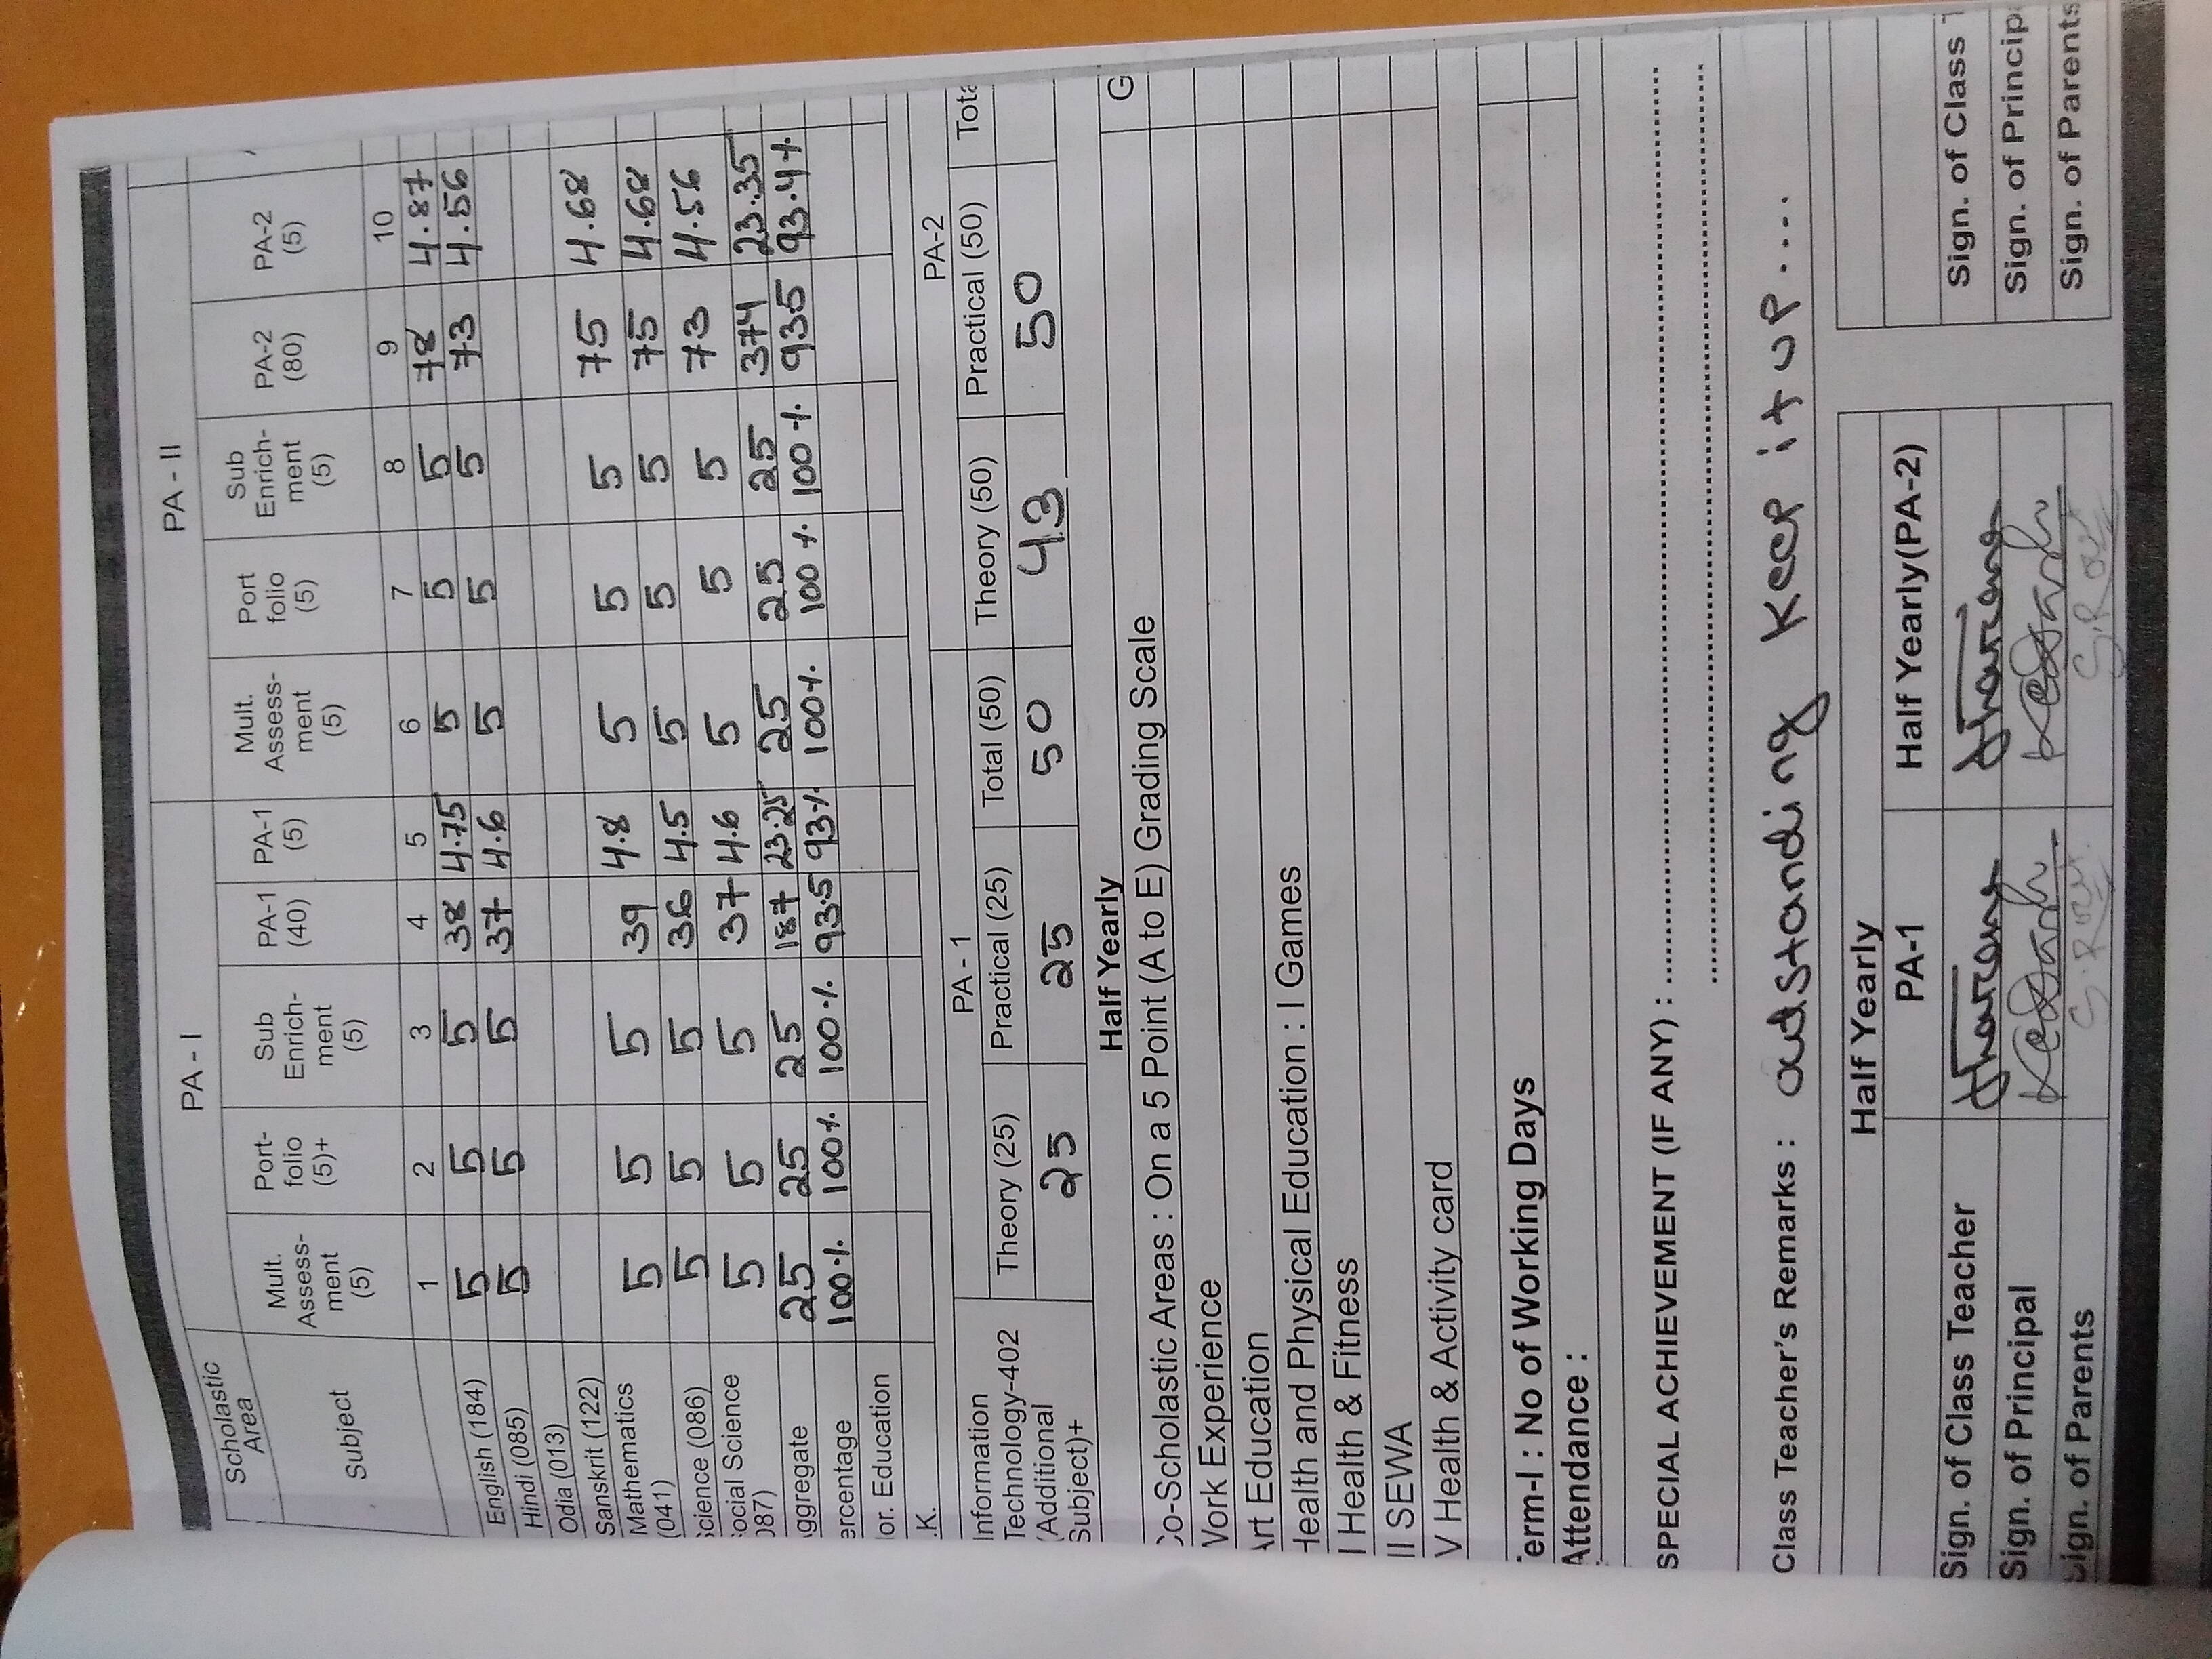 PA - I PA - II
Scholastic Area
Subject Mult. Assess-ment (5) Port-folio (5)+ Sub Enrich-ment (5) PA-1 (40) PA-1 (5) Mult. Assess-ment (5) Port folio (5) Sub Enrich-ment (5) PA-2 (80) PA-2 (5)
1 2 3 4 5 6 7 8 9 10
English (184) 5 5 5 38 4.75 5 5 5 78 4.87
Hindi (085) 5 5 5 37 4.6 5 5 5 73 4.56
Odia (013)
Sanskrit (122) 5 5 5 39 4.8 5 5 5 75 4.68
Mathematics (041) 5 5 5 36 4.5 5 5 5 75 4.68
cience (086) 5 5 5 37 4.6 5 5 5 73 4.56
ocial Science 087)
ggregate 25 25 25 187 23.25 25 25 25 374 23.35
ercentage 100% 100% 100% 93.5 93% 100% 100% 100% 935 93.4%
or. Education
.K.
PA - 1 PA-2
Information Technology-402 (Additional Subject)+ Theory (25) Practical (25) Total (50) Theory (50) Practical (50) Tota
25 25 50 43 50
Half Yearly
Co-Scholastic Areas : On a 5 Point (A to E) Grading Scale G
Work Experience
Art Education
Health and Physical Education : I Games
I Health & Fitness
II SEWA
V Health & Activity card
erm-I : No of Working Days
Attendance :
SPECIAL ACHIEVEMENT (IF ANY) :
Class Teacher's Remarks : outstanding keep it up....
Half Yearly
PA-1 Half Yearly(PA-2)
Sign. of Class Teacher Sign. of Class T
Sign. of Principal Sign. of Princip
Sign. of Parents S.Rout S.Rout Sign. of Parents